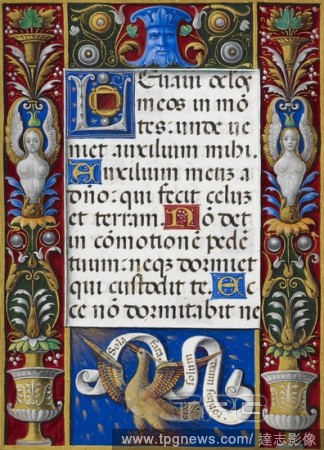 LEuaui oclos
meos in mō
tes. unde ue
niet auxilium mihi.
Auxilium meuz a
dño: qui fecit celuz
et terram. Nō det
in cōmotionē pedē
tuum: neqz dormiet
qui custodit te. Ec
ce nō dormitabit ne
Sola
solum
www.tpgnews.com/ 達志影像